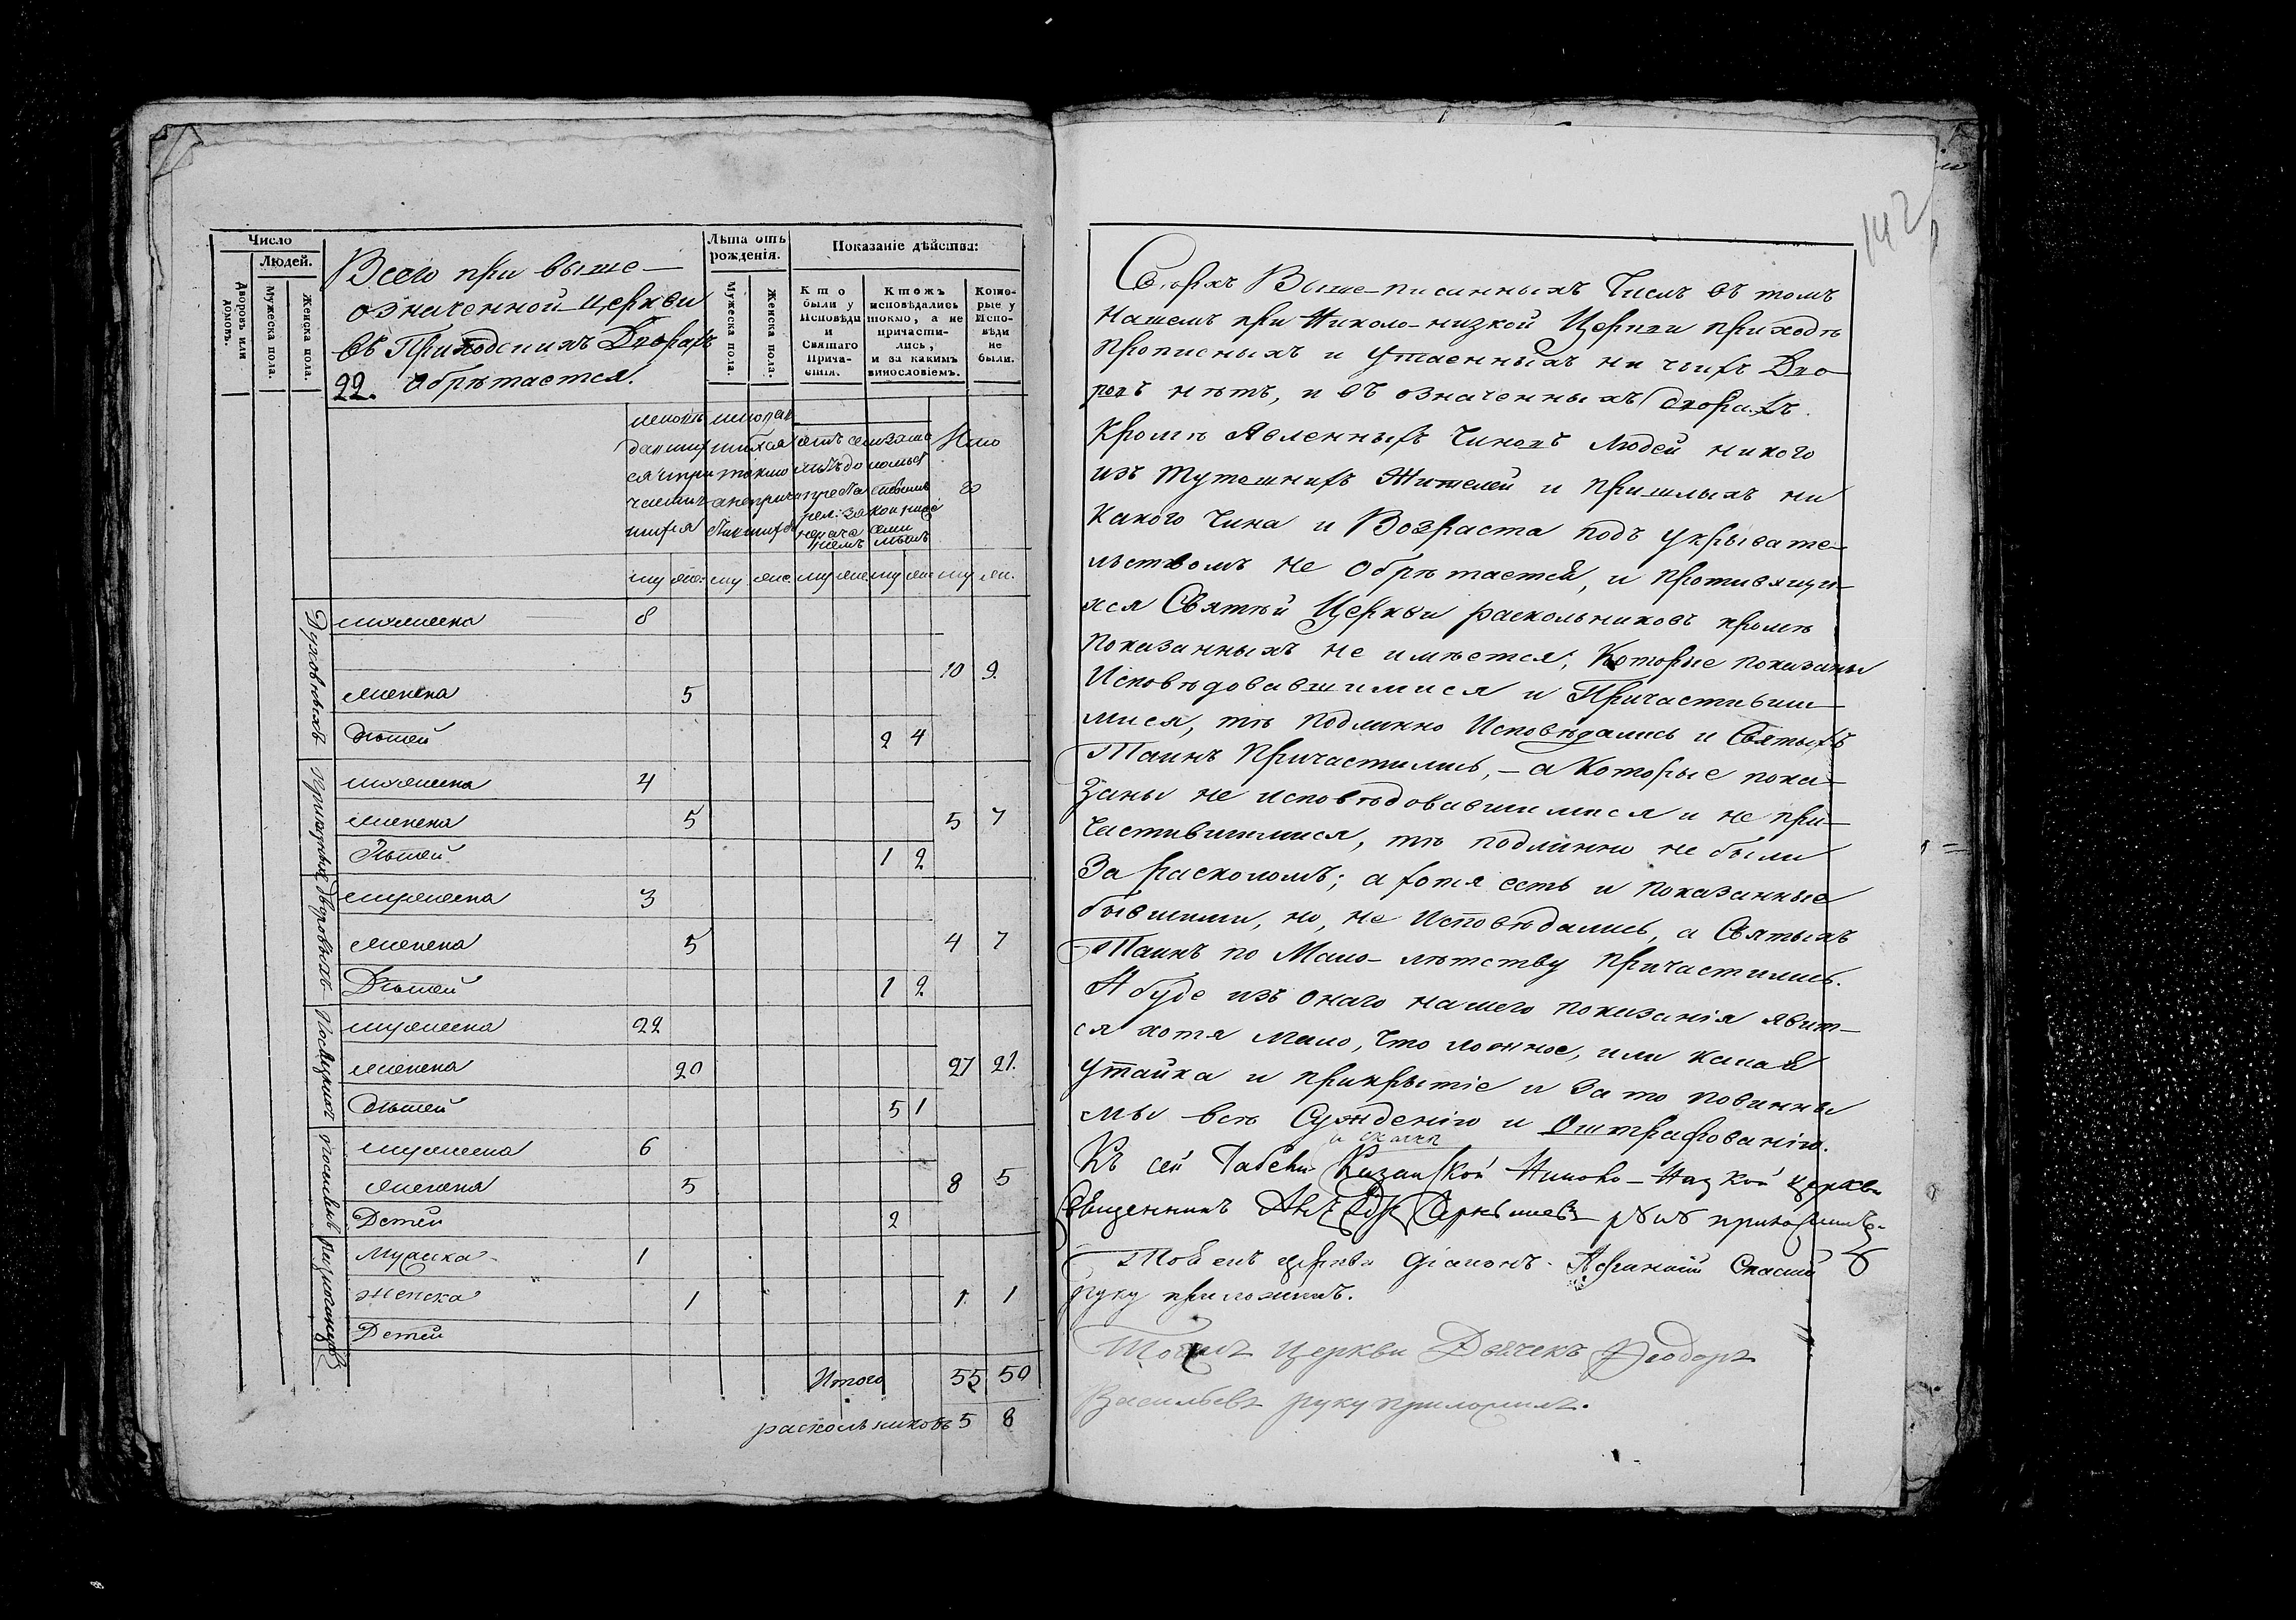 Число
Людей.
Дворовъ или домовъ.
Мужеска пола.
Женска пола.
Всего при выше-
означенной церкви
въ Приходскихъ Дворахъ
22. обрѣтается.
Лѣта отъ рожденія.
Мужеска пола.
Женска пола.
Показаніе дѣйства:
Кто были у Исповѣди и Святаго Прича-стія.
Ктожъ исповѣдались токмо, а не причасти-лись, и за какимъ винословіемъ.
Кото-рые у Испо-вѣди не были.
му же: му же. му же му же му же.
Духовныхъ
мужеска 8
10 9.
женска 5
дѣтей 2 4
Приказныхъ
мужеска 4
женска 5 5 7
Дѣтей 1 2
Дворовыхъ
мужеска 3
женска 5 4 7
Дѣтей 1 2
мужеска 22
женска 20 27 21.
дѣтей 5 1
мужеска 6
женска 5 8 5
Детей 2
Мужска 1
Женска 1 1 1
Детей
Итого 55 50
раскольниковъ 5 8
142
Сверхъ Выше-писанныхъ Числъ въ томъ
Нашемъ при Николо-низкой Церкви приходѣ
Прописныхъ и утаенныхъ ни чьихъ Дво-
ровъ нѣтъ, и въ означенныхъ дворахъ
Кромѣ Явленныхъ Чиновъ Людей никого
изъ тутошнихъ Жителей и пришлыхъ ни
Какого Чина и Возраста подъ укрывате-
льствомъ не Обрѣтается, и противящи-
хся Святѣй Церкви раскольниковъ кромѣ
Показанныхъ не имѣется; Которые показаны
Исповѣдовавшимися и Причастивши-
мися, тѣ подлинно Исповѣдались и Святыхъ
Таинъ Причастились, - а Которые пока-
Заны не исповѣдовавшимися и не при-
частившимися, тѣ подлинно не были
За расколомъ; а хотя есть и показанные
бывшими, но, не Исповѣдались, а Святыхъ
Таинъ по Мало-лѣтству причастились.
А буде изъ онаго нашего показанія явит-
ся хотя мало, что ложное, или какая
утайка и прикрытіе и за то повинны
мы всѣ Сужденію и Оштрафованію.
Къ сей Табели Казанской Николо-Низкой церкви
Священникъ руку приложилъ.
Тоя жъ церкви діаконъ
руку приложилъ.
Тояжъ церкви Дьячекъ Ѳеодоръ
Васильевъ руку приложилъ.